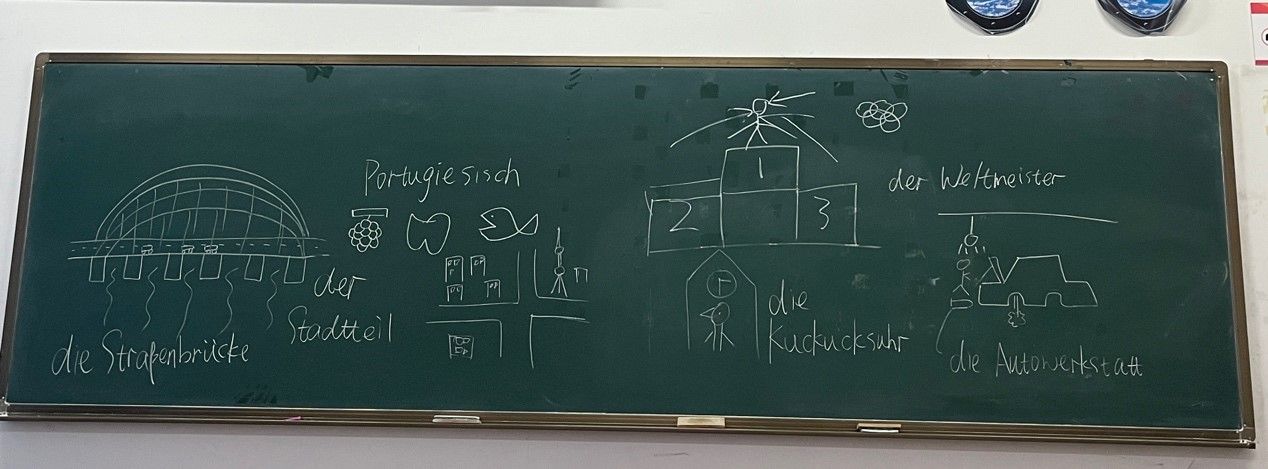 Portugiesisch
der
Stadtteil
die Straßenbrücke
1
2
3
der Weltmeister
die
Kuckucksuhr
die Autowerkstatt